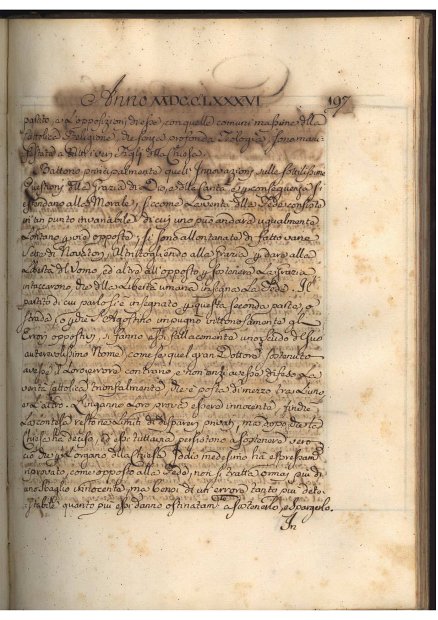 Anno MDCCLXXXVI 197
partito, e la opposizioni di esse con quelle comuni massime della
Cattolica Religione, che senza profonda Teologia, sono mani-
festate a tutti i veri Figli della Chiesa.
Battono principalmente quelle Innovazioni sulle sottilissime
Questioni della Grazia di Dio, e della Carità e per conseguenza si
estendano alla Morale; siccome la verità della Fede consiste
in un punto invariabile di cui uno può andare ugualmente
lontano per vie opposte, si sono allontanati di fatto varie
Sette di Novatori, altri togliendo alla Grazia per dare alla
Libertà del Uomo, ed altri all'opposto per sostenere la Grazia
intaccarono che della Libertà umana insegna la Fede. Il
partito di cui parlo si è insegnato per questa seconda parte, o
strada, e perché S. Agostino impugnò vittoriosamente gli
Errori opposti, si fanno essi fallacemente uno scudo del suo
autorevolissimo Nome, come se quel gran Dottore sostenuto
avesse l'Errore contrario, e non anzi avesse difesa la
verità Cattolica trionfalmente che è posta di mezzo tra l'uno
e l'altro. L'inganno loro potrà essere innocente finché
la contesa restò ne limiti di dispareri privati, ma dopo che la
Chiesa ha deciso, ed essi tuttavia persistono a sostenere
ciò che per l'organo della Chiesa Iddio medesimo ha espressam.
riprovato, come opposto alla Fede, non si tratta ormai più di
uno sbaglio innocente, ma bensì di un errore tanto più dete-
stabile quanto più essi danno ostinatam. a sostenerlo, e spargerlo.
In